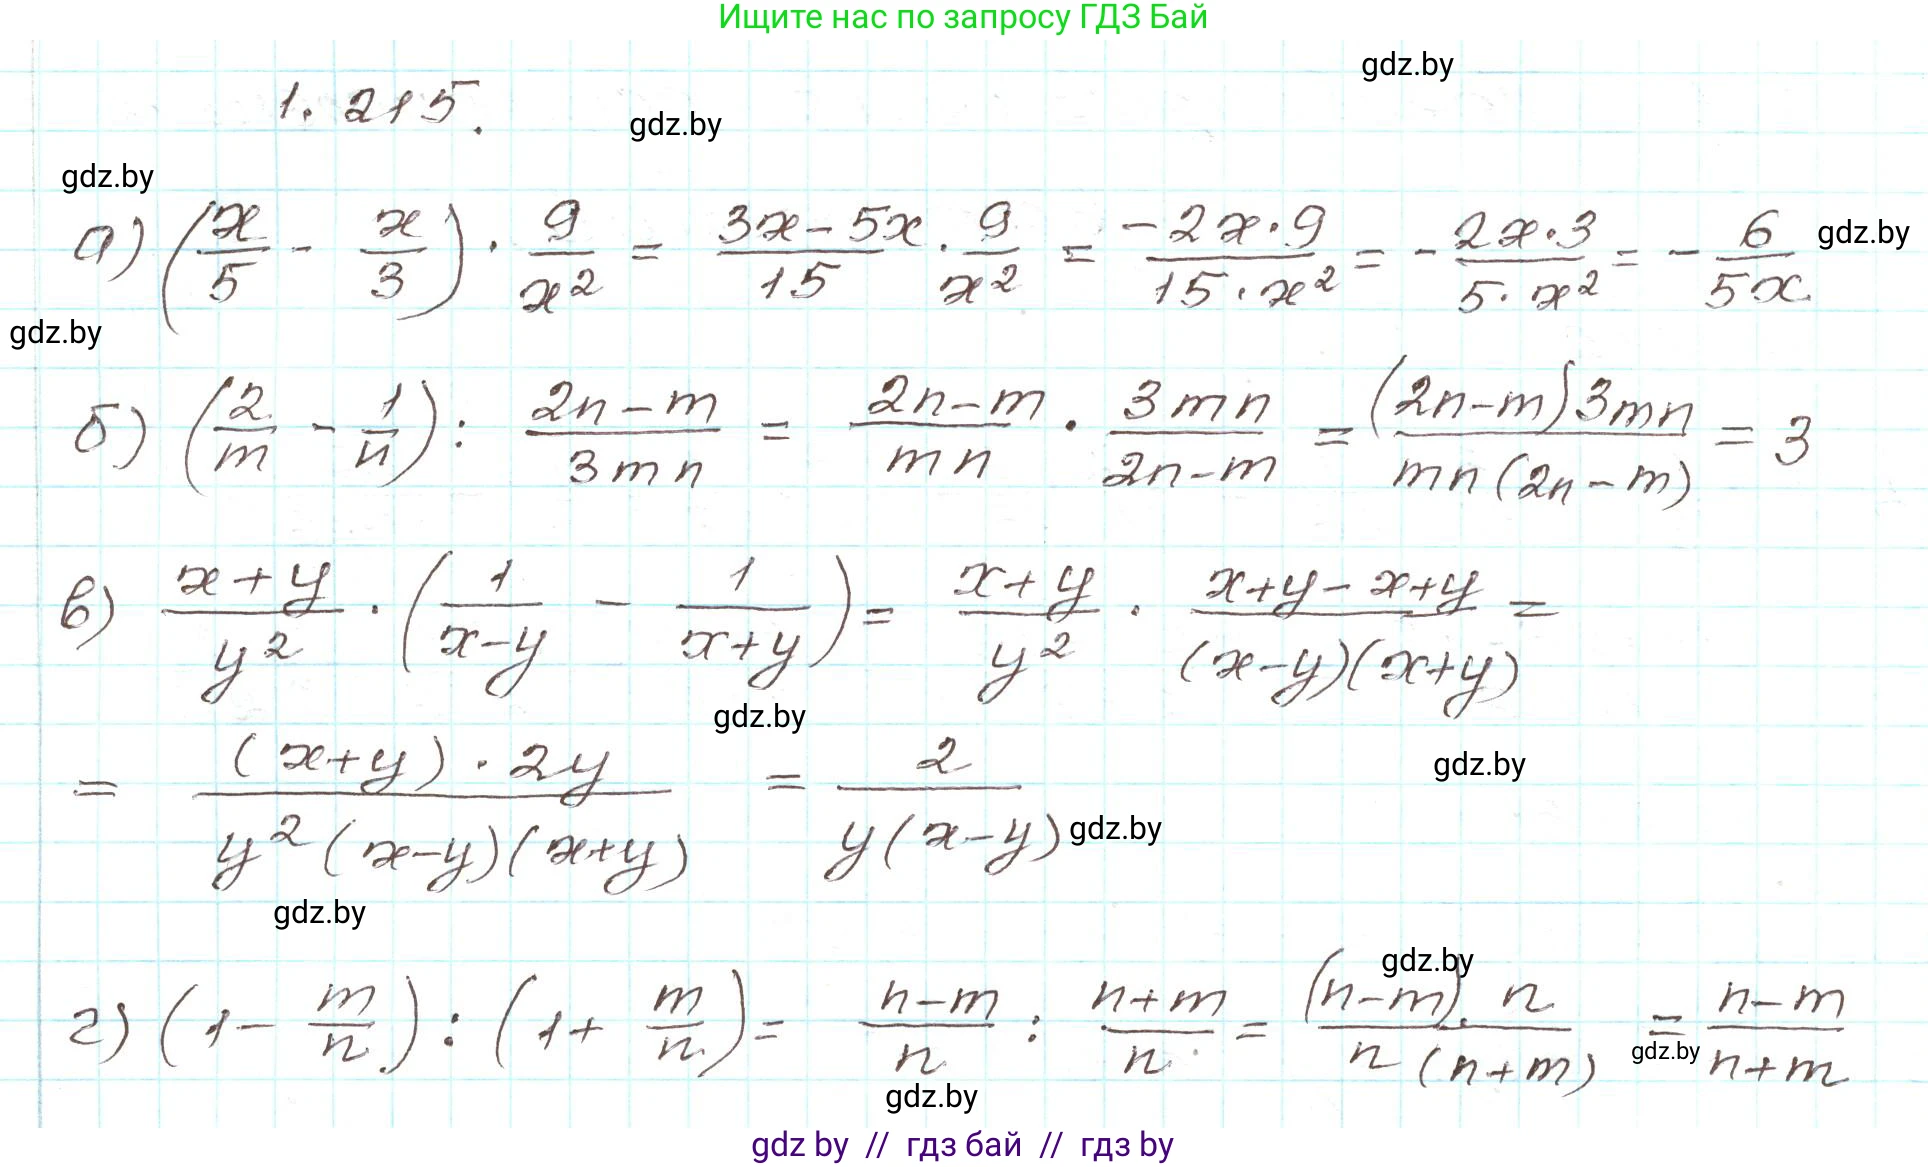 Ищите нас по запросу ГДЗ Бай
gdz.by
1.215.
gdz.by
gdz.by
а) (x/5 - x/3) · 9/x² = (3x - 5x)/15 · 9/x² = (-2x·9)/(15·x²) = - (2x·3)/(5·x²) = - 6/(5x)
gdz.by
gdz.by
б) (2/m - 1/n) : (2n-m)/(3mn) = (2n-m)/(mn) · (3mn)/(2n-m) = ((2n-m)3mn)/(mn(2n-m)) = 3
в) (x+y)/y² · (1/(x-y) - 1/(x+y)) = (x+y)/y² · (x+y-x+y)/((x-y)(x+y)) =
gdz.by
= ((x+y)·2y)/(y²(x-y)(x+y)) = 2/(y(x-y))
gdz.by
gdz.by
gdz.by
gdz.by
г) (1 - m/n) : (1 + m/n) = (n-m)/n : (n+m)/n = ((n-m)·n)/(n(n+m)) = (n-m)/(n+m)
gdz.by
gdz.by
gdz by // гдз бай // гдз by